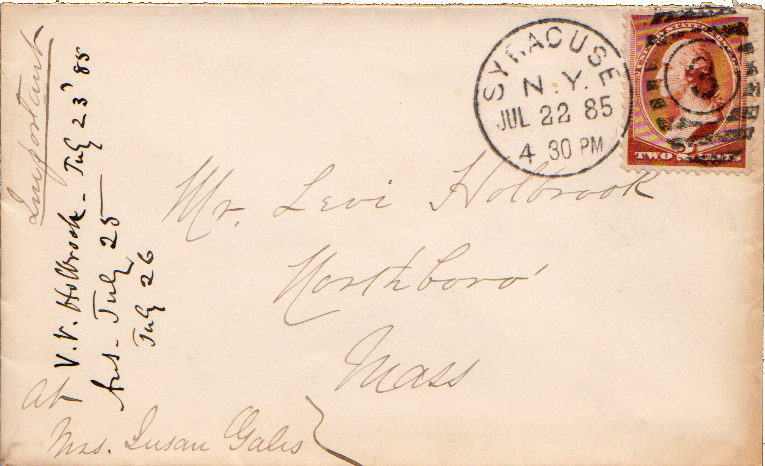 SYRACUSE
N.Y.
JUL 22 85
4 30 PM
3
TWO CENTS
Mr. Levi Holbrook
Northboro'
Mass
at
Mrs. Susan Gales
Important
V.V. Holbrook - July 23 '85
Ans - July 25
July 26